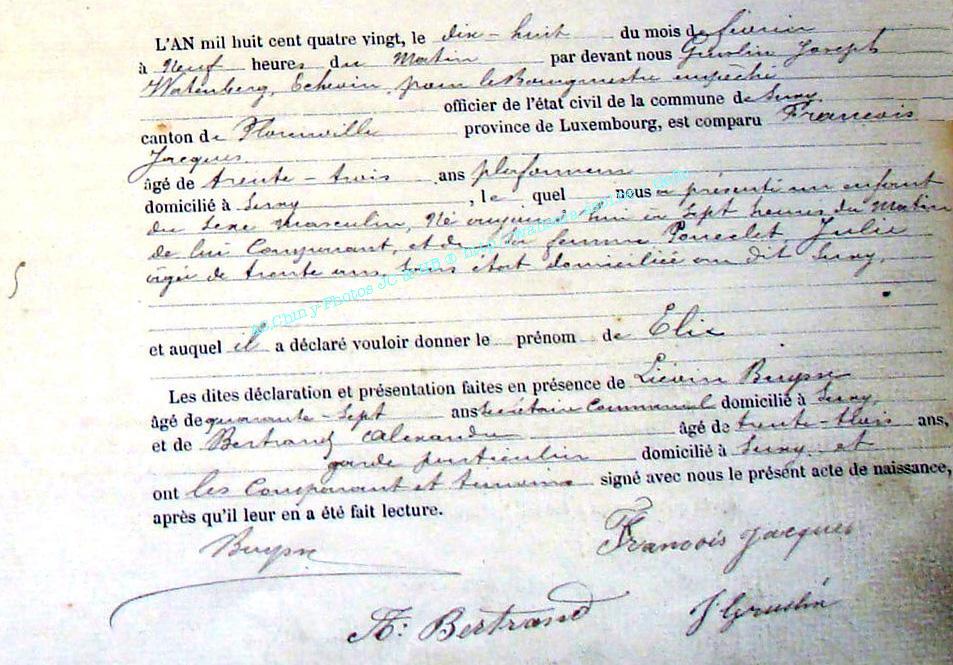 L'AN mil huit cent quatre vingt, le dix-huit du mois de février
à Neuf heures du Matin par devant nous Joseph
Echevin, pour le Bourgmestre empêché
officier de l'état civil de la commune de Suxy
canton de Florenville province de Luxembourg, est comparu Francois
Jacques
âgé de trente-trois ans plafonneur
domicilié à Suxy, le quel nous a présenté un enfant
du Sexe Masculin, Né aujourd'hui à Sept heures du Matin
de lui Comparant, et de Sa femme Poncelet Julie
agée de trente ans, Sans état domiciliée au dit Suxy,
et auquel il a déclaré vouloir donner le prénom de Elie
Les dites déclaration et présentation faites en présence de Liévin Buysse
âgé de quarante-Sept ans Secrétaire Communal domicilié à Suxy
et de Bertrand Alexandre âgé de trente-trois ans,
garde particulier domicilié à Suxy et
ont les Comparant et temoins signé avec nous le présent acte de naissance,
après qu'il leur en a été fait lecture.
Buysse
Francois Jacques
A: Bertrand
J Gruslin